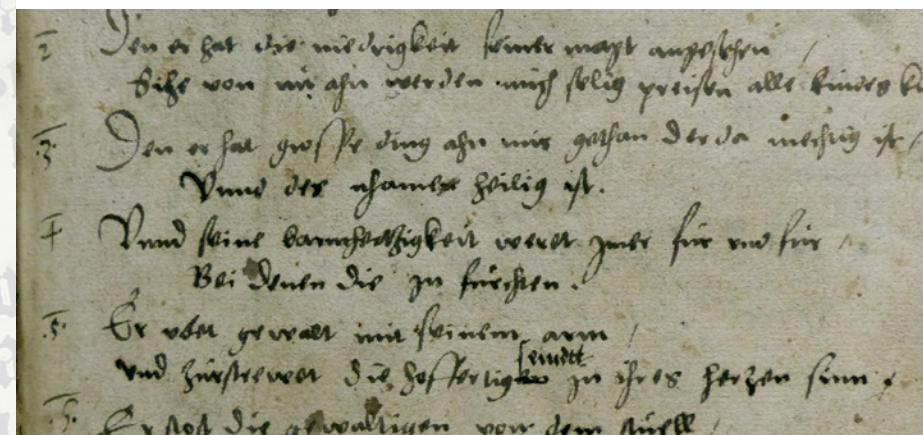 2 Den er hat die niedrigkeit seiner magt angesehen /
Sihe von nu ahn werden mich selig preisen alle kindes
3 Den er hat grosse ding ahn mir gethan der da mechtig ist /
Vnnd des nhamen heilig ist.
4 Vnnd seine barmhertzigkeit weret imer für vnd für /
Bei denen die in fürchten.
.5. Er vbet gewalt mit seinem arm /
vnd zurstrewet die hoffertig
seindt
in ihres herzen sinn
Er stost die gewaltigen von dem stuell /